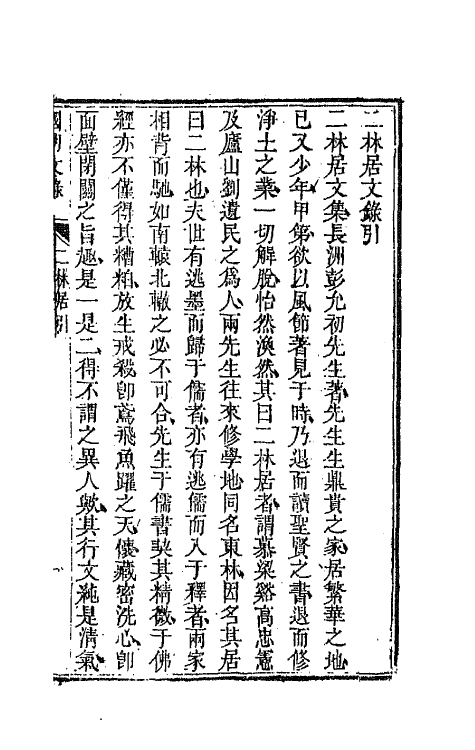 二林居文錄引
二林居文集長洲彭允初先生著先生生鼎貴之家居繁華之地
已又少年甲第欲以風節著見于時乃退而讀聖賢之書退而修
淨土之業一切解脫怡然渙然其曰二林居者謂慕梁谿高忠憲
及廬山劉遺民之爲人兩先生往來修學地同名東林因名其居
曰二林也夫世有逃墨而歸于儒者亦有逃儒而入于釋者兩家
相背而馳如南轅北轍之必不可合先生于儒書契其精微于佛
經亦不僅得其糟粕放生戒殺卽鳶飛魚躍之天倪藏密洗心卽
面壁閉關之旨趣是一是二得不謂之異人歟其行文純是清氣
國朝文錄 二林居引